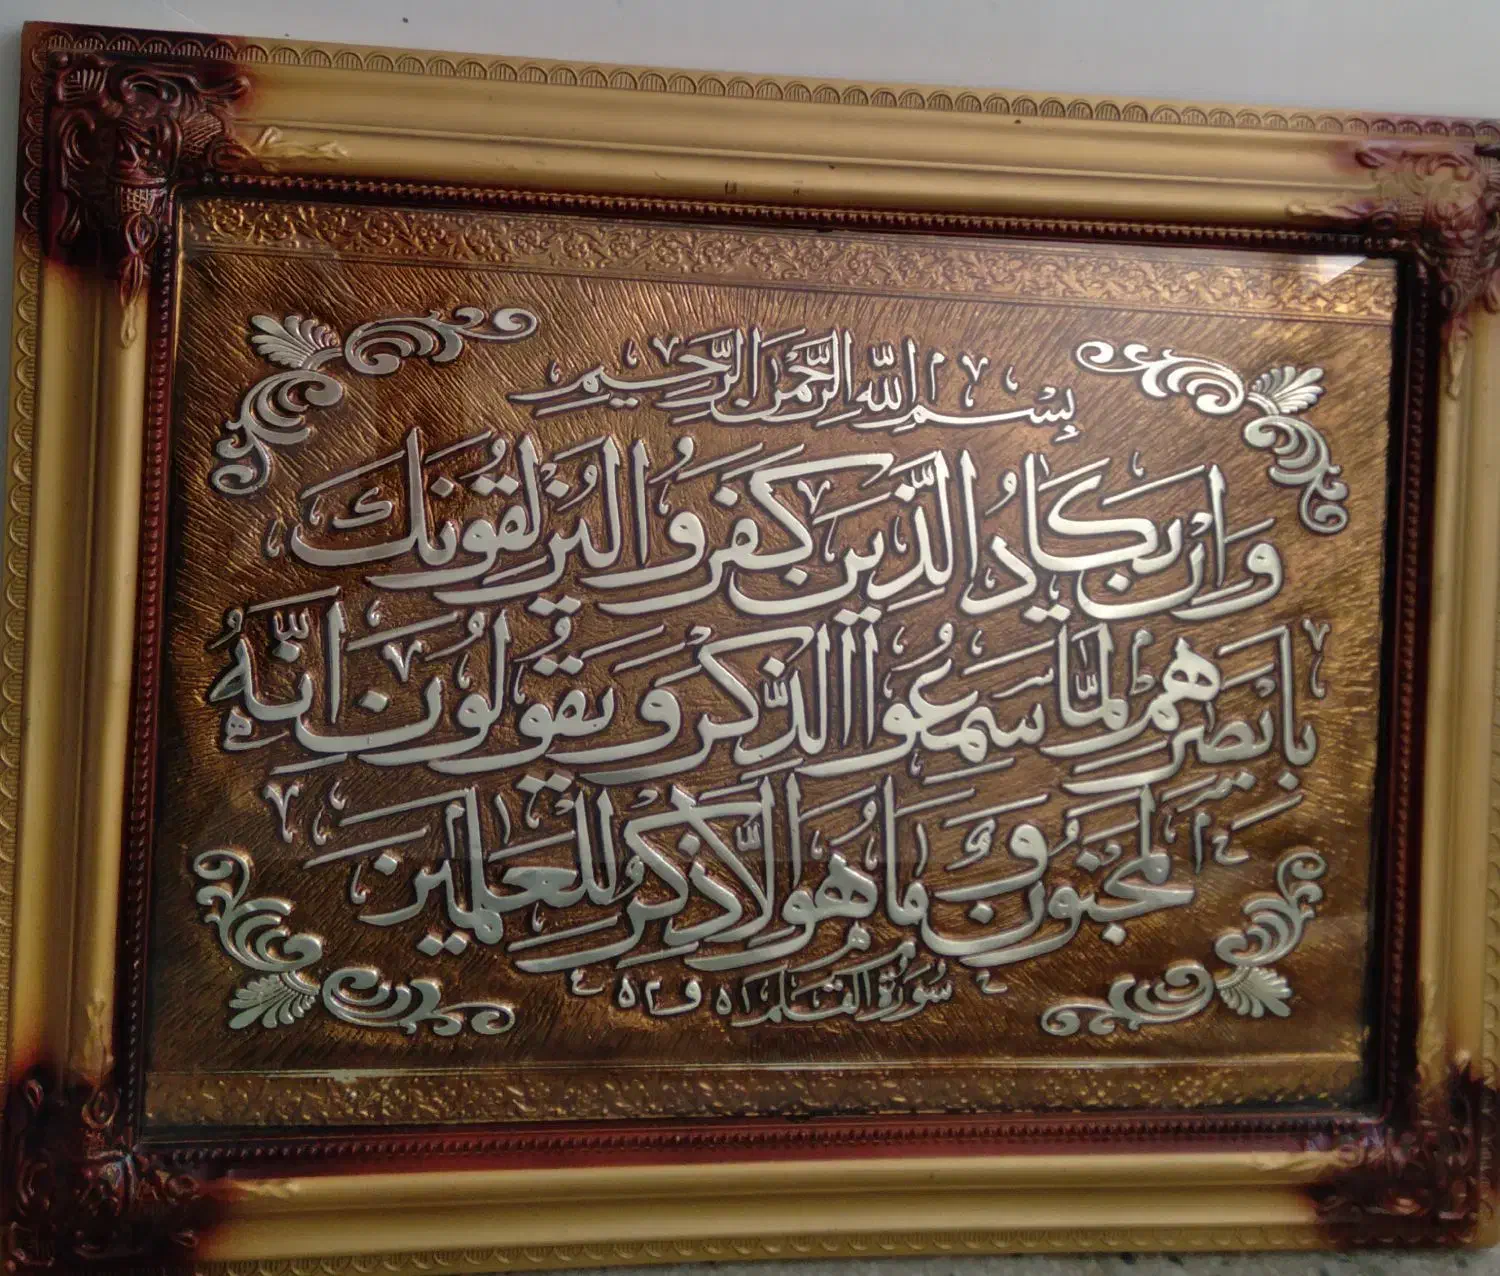 بِسْمِ اللّٰهِ الرَّحْمٰنِ الرَّحِيمِ
وَاِنْ يَكَادُ الَّذِينَ كَفَرُوا لَيُزْلِقُونَكَ
بِاَبْصٰرِهِمْ لَمَّا سَمِعُوا الذِّكْرَ وَيَقُولُونَ اِنَّهُ
لَمَجْنُونٌ وَمَا هُوَ اِلَّا ذِكْرٌ لِلْعٰلَمِينَ
سُورَةُ القَلَم ٥١ و ٥٢